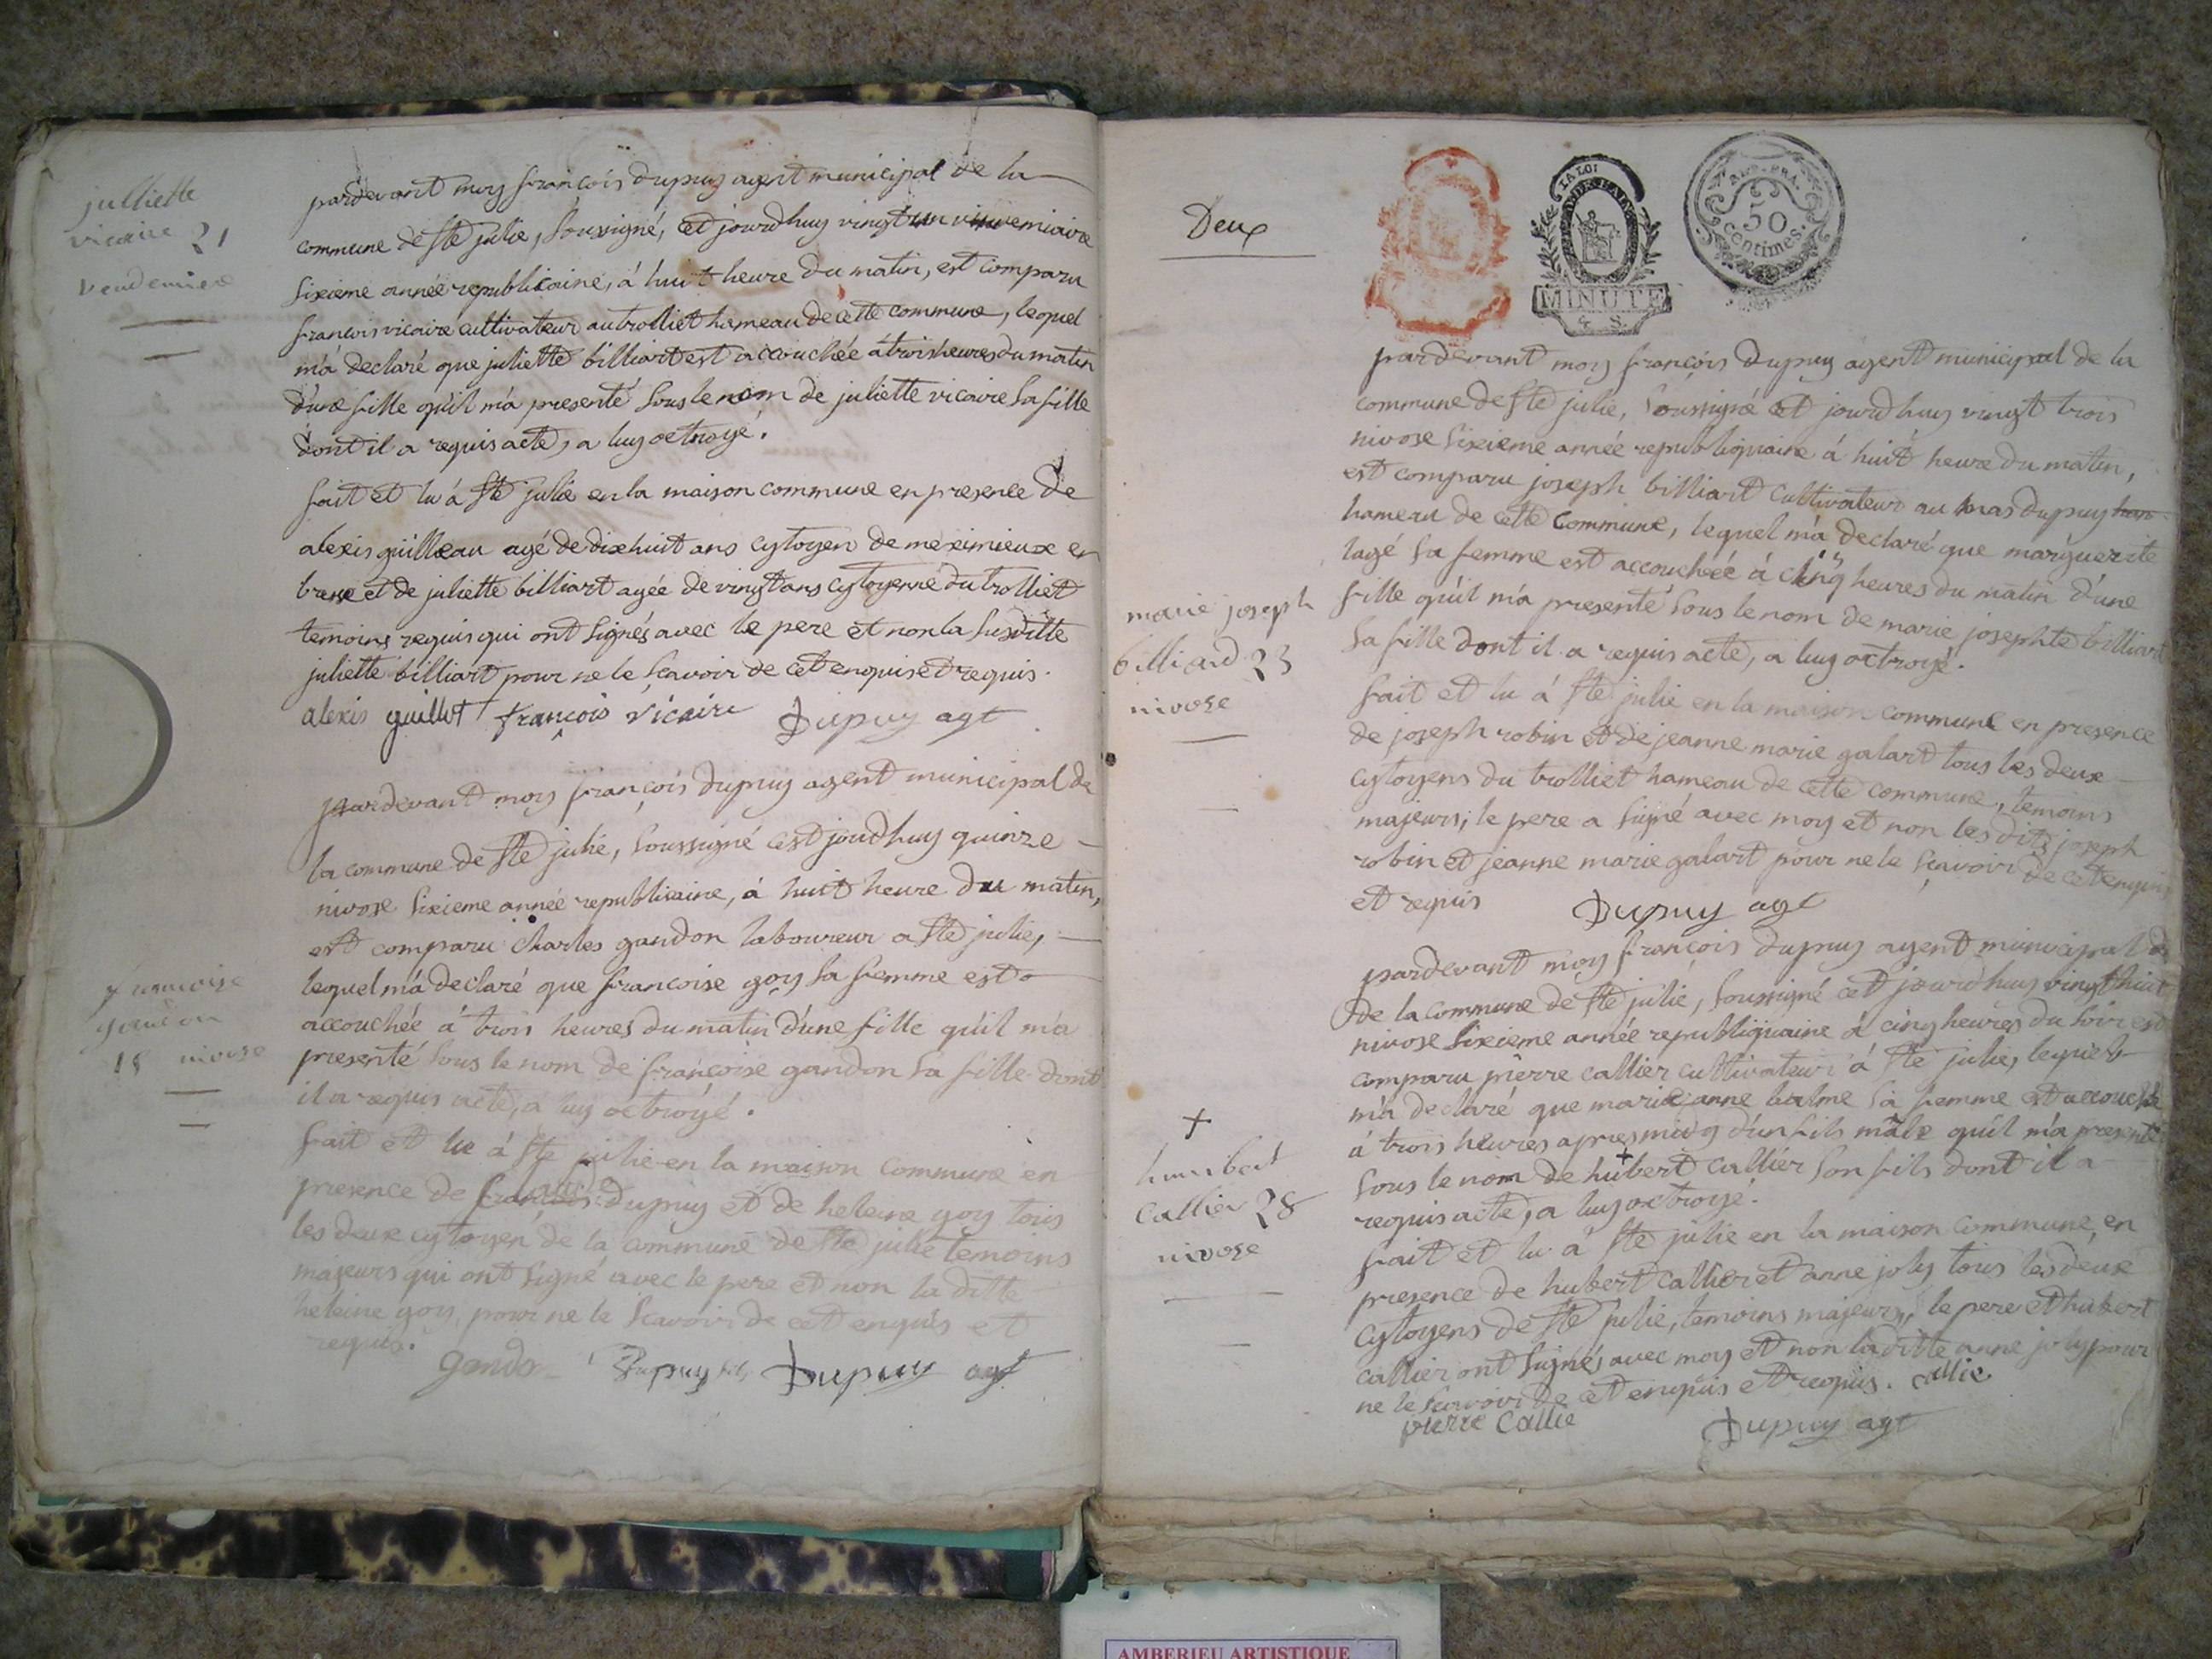 julliette
vicaire 21
vendemiere
pardevant moy françois dupuy agent municipal de la
commune de Ste julie, soussigné, cet jourdhuy vingt un
sixieme année republicaine, á huit heure du matin, est comparu
francois vicaire cultivateur au trolliet hameau de cette commune, lequel
m'a declaré que juliette billiart est accouchée á trois heures du matin
d'une fille qu'il m'a presenté sous le nom de juliette vicaire sa fille
dont il a requis acte, a luy octroyé.
fait et lu á Ste julie en la maison commune en presence de
alexis guilleau agé de dixhuit ans cytoyen de meximieux en
et de juliette billiart agée de vingt ans cytoyenne du trolliet
temoins requis qui ont signés avec le pere et non la susditte
juliette billiart pour ne le sçavoir de cet enquise et requis.
alexis guillot françois vicaire Dupuy agt
pardevant moy françois dupuy agent municipal de
la commune de Ste julie, soussigné cest joudhuy quinze
nivose sixieme année republicaine, á huit heure du matin,
est comparu Charles gandon laboureur a Ste julie,
lequel m'a declaré que francoise goy sa femme est
accouchée á trois heures du matin d'une fille qu'il m'a
presenté sous le nom de françoise gandon sa fille dont
il a requis acte, a luy octroyé.
fait et lu á Ste julie en la maison commune en
presence de dupuy et de heleine goy tous
les deux cytoyen de la commune de Ste julie temoins
majeurs qui ont signé avec le pere et non la ditte
heleine goy, pour ne le scavoir de cet enquis et
requis.
francoise
gandon
15 nivose
gando Dupuy fils Dupuy agt
Deux
LA LOI
MINUTE
4 S.
REP. FRA.
50
centimes.
pardevant moy françois Dupuy agent municipal de la
commune de Ste julie, soussigné cet jourdhuy vingt trois
nivose sixieme année republiquaine á huit heure du matin,
est comparu joseph billiart cultivateur au mas dupuy ham
hameau de cette commune, lequel m'a declaré que marguerite
lagé sa femme est accouchéé á cinq heures du matin d'une
fille qu'il m'a presenté sous le nom de marie josephte billiart
sa fille dont il a requis acte, a luy octroyé.
marie joseph
billiard 23
nivose
fait et lu á Ste julie en la maison commune en presence
de joseph robin et de jeanne marie galart tous les deux
cytoyens du trolliet hameau de cette commune, temoins
majeurs; le pere a signé avec moy et non les dits joseph
robin et jeanne marie galart pour ne le sçavoir de cet enquis
et requis Dupuy agt
pardevant moy françois dupuy agent municipal de
de la commune de Ste julie, soussigné cet jourdhuy vingt huit
nivose sixieme année republiquaine á cinq heures du soir est
comparu pierre callier cultivateur á Ste julie, lequel
m'a declaré que marie anne balme sa femme est accouché
á trois heures apres midy d'un fils mâle qu'il m'a presenté
sous le nom de hubert callier son fils dont il a
requis acte, a luy octroyé.
+
humbert
callier 28
nivose
fait et lu á Ste julie en la maison commune, en
presence de hubert callier et anne joly tous les deux
cytoyens de Ste julie, temoins majeurs, le pere et hubert
callier ont signés avec moy et non la ditte anne joly pour
ne le scavoir de cet enquis et requis. callie
pierre Callie Dupuy agt
AMBERIEU ARTISTIQUE